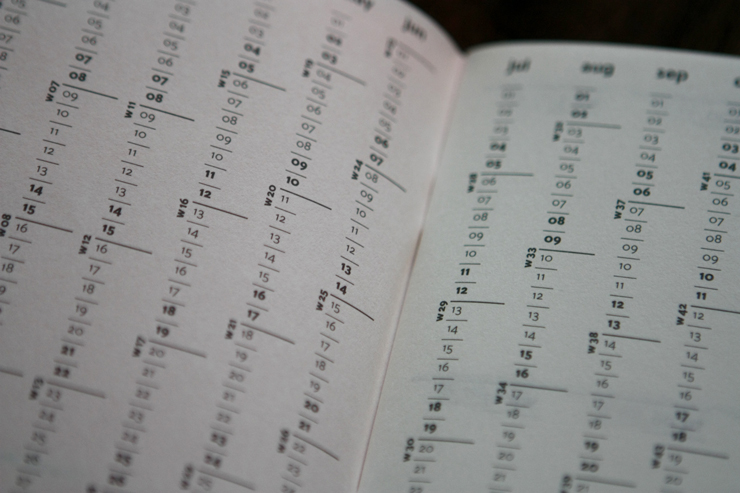 04
05
06
07
08
W07 09
10
11
12
13
14
15
W08 16
17
18
03
04
05
06
07
08
W11 09
10
11
12
13
14
15
W12 16
17
18
19
20
21
22
W13 23
24
25
03
04
05
W15 06
07
08
09
10
11
12
W16 13
14
15
16
17
18
19
W17 20
21
22
23
24
W19 04
05
06
07
08
09
10
W20 11
12
13
14
15
16
17
W21 18
19
20
21
22
23
24
jun
05
06
07
W24 08
09
10
11
12
13
14
W25 15
16
17
18
19
20
21
W26 22
23
jul
04
05
W28 06
07
08
09
10
11
12
W29 13
14
15
16
17
18
19
W30 20
21
aug
01
02
W32 03
04
05
06
07
08
09
W33 10
11
12
13
14
15
16
W34 17
18
19
20
21
sep
01
02
03
04
05
06
W37 07
08
09
10
11
12
13
W38 14
15
16
17
18
19
20
01
02
03
04
W41 05
06
07
08
09
10
11
W42 12
13
14
15
16
17
18
W43 19
20